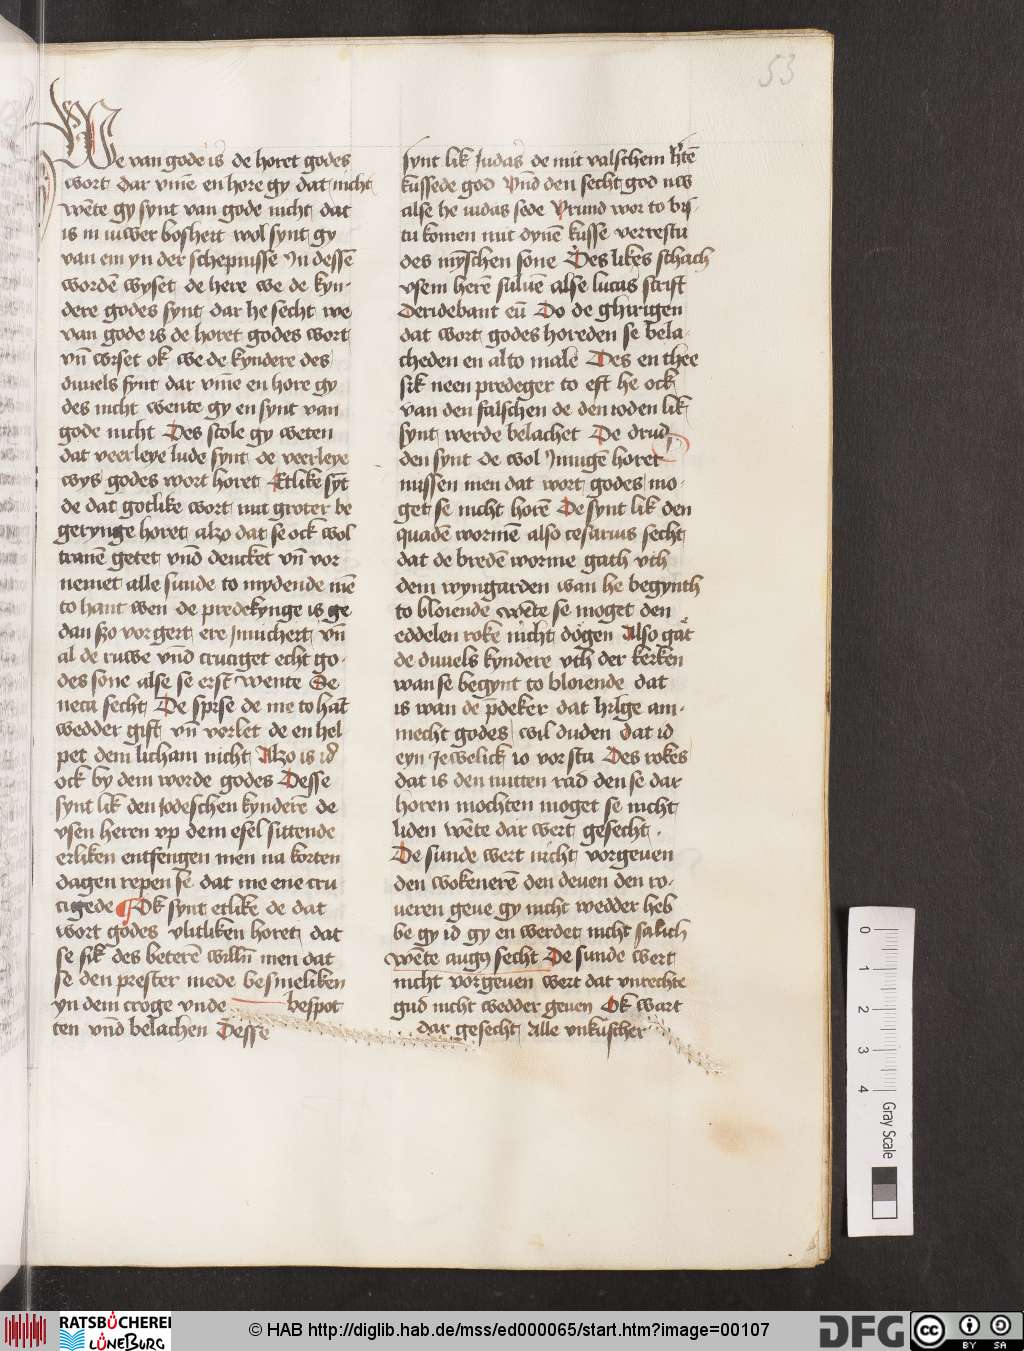 53
We van gode is de horet godes
wort dar vm̄e en hore gy dat nicht
wēte gy synt van gode nicht dat
is in iuwer bosheit wol synt gy
van em yn der schepnisse In dessē
wordē wyset de here we de kyn-
dere godes synt dar he secht we
van gode is de horet godes wort
vn̄ wiset ok we de kyndere des
duuels synt dar vm̄e en hore gy
des nicht wente gy en synt van
gode nicht Des scole gy weten
dat veerleye lude synt de veerleye
wys godes wort horet Etlike sȳt
de dat gotlike wort mit groter be
gerynge horet alzo dat se ock wol
tranē getet vnd dencket vn̄ vor
nemet alle sunde to mydende mē
to hant wen de predekynge is ge
dan so vorgert ere innicheit vn̄
al de ruwe vnd cruciget echt go-
des sone alse se erst wente Se
neca secht De spise de me to hāt
wedder gift vn̄ verlet de en hel
pet dem licham nicht Alzo is id
ock by dem worde godes Desse
synt lik den Jodeschen kynderē de
vsen heren vp dem esel sittende
erliken entfengen men na korten
dagen repen se dat me ene cru
cigede Ok synt etlike de dat
wort godes vlitliken horet dat
se sik des beterē willn̄ men dat
se den prester mede besmeliken
yn dem croge vnde bespot
ten vnd belachen Desse
synt lik Judas de mit valschem h'tē
kussede god Vnd den secht god uw
alse he iudas sede Vrund wor to bis-
tu komen mit dynē kusse verrestu
des mȳschen sone Des likes schach
vsem herē saluē alse lucas scrift
Deridebant eū Do de ghirigen
dat wort godes horeden se bela-
cheden en alto male Des en thee
sik neen predeger to eft he ock
van den falschen de den ioden lik
synt werde belachet De drud
den synt de wol Innigē horet
nussen men dat wort godes mo-
get se nicht horē De synt lik den
quadē wormē also cesarius secht
dat de bredē worme gath vth
dem wyngarden wan he begynth
to bloiende wēte se moget den
eddelen roke nicht dogen Also gāt
de duuels kyndere vth der kerken
wan se begynt to bloiende dat
is wan de p̄deker dat hilge am-
mecht godes wil duden dat id
eyn Jewelick io vorsta Des rokes
dat is den nutten rad den se dar
horen mochten moget se nicht
liden wēte dar wert gesecht .
De sunde wert nicht vorgeuen
den wokenerē den deuen den ro-
ueren geue gy nicht wedder heb
be gy id gy en werdet nicht salich
wēte augus secht De sunde wert
nicht vorgeuen wert dat vnrechte
gud nicht wedder geuen Ok wart
dar gesecht Alle vnkuscher
0
1
2
3
4
Gray Scale
RATSBÜCHEREI
LÜNEBURG
© HAB http://diglib.hab.de/mss/ed000065/start.htm?image=00107
DFG
cc
BY
SA